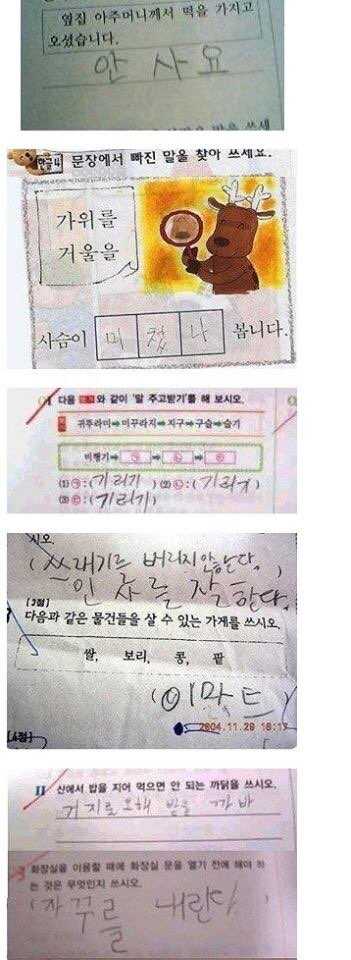 옆집 아주머니께서 떡을 가지고
오셨습니다.
안 사 요
한글4 문장에서 빠진 말을 찾아 쓰세요.
가위를
거울을
사슴이 미 쳤 나 봅니다.
다음 와 같이 '말 주고받기'를 해 보시오.
귀뚜라미➡미꾸라지➡지구➡구슬➡슬기
비행기➡㉠➡㉡➡㉢
(1) ㉠:(기러기) (2) ㉡:(기러기)
(3) ㉢:(기러기)
시오.
(쓰레기를 버리지 안는다.)
인사를 잘한다.
[3점]
다음과 같은 물건들을 살 수 있는 가게를 쓰시오.
쌀, 보리, 콩, 팥
(이마트)
2004.11.29
[4점]
11 산에서 밥을 지어 먹으면 안 되는 까닭을 쓰시오.
거지로 오해 받을까바
화장실을 이용할 때에 화장실 문을 열기 전에 해야 하
는 것은 무엇인지 쓰시오.
(자꾸를 내린다)